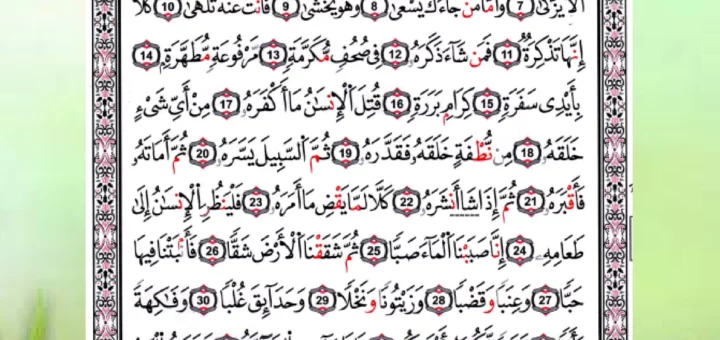 أَلَّا يَزَّكَّىٰ 7 وَأَمَّا مَن جَاءَكَ يَسْعَىٰ 8 وَهُوَ يَخْشَىٰ 9 فَأَنتَ عَنْهُ تَلَهَّىٰ 10 كَلَّا
إِنَّهَا تَذْكِرَةٌ 11 فَمَن شَآءَ ذَكَرَهُۥ 12 فِى صُحُفٍ مُّكَرَّمَةٍ 13 مَّرْفُوعَةٍ مُّطَهَّرَةٍ 14
بِأَيْدِى سَفَرَةٍ 15 كِرَامٍ بَرَرَةٍ 16 قُتِلَ ٱلْإِنسَٰنُ مَآ أَكْفَرَهُۥ 17 مِنْ أَىِّ شَىْءٍ
خَلَقَهُۥ 18 مِن نُّطْفَةٍ خَلَقَهُۥ فَقَدَّرَهُۥ 19 ثُمَّ ٱلسَّبِيلَ يَسَّرَهُۥ 20 ثُمَّ أَمَاتَهُۥ
فَأَقْبَرَهُۥ 21 ثُمَّ إِذَا شَا أَنشَرَهُۥ 22 كَلَّا لَمَّا يَقْضِ مَآ أَمَرَهُۥ 23 فَلْيَنظُرِ ٱلْإِنسَٰنُ إِلَىٰ
طَعَامِهِۦٓ 24 إِنَّا صَبَبْنَا ٱلْمَآءَ صَبًّا 25 ثُمَّ شَقَقْنَا ٱلْأَرْضَ شَقًّا 26 فَأَنۢبَتْنَا فِيهَا
حَبًّا 27 وَعِنَبًا وَقَضْبًا 28 وَزَيْتُونًا وَنَخْلًا 29 وَحَدَآئِقَ غُلْبًا 30 وَفَٰكِهَةً